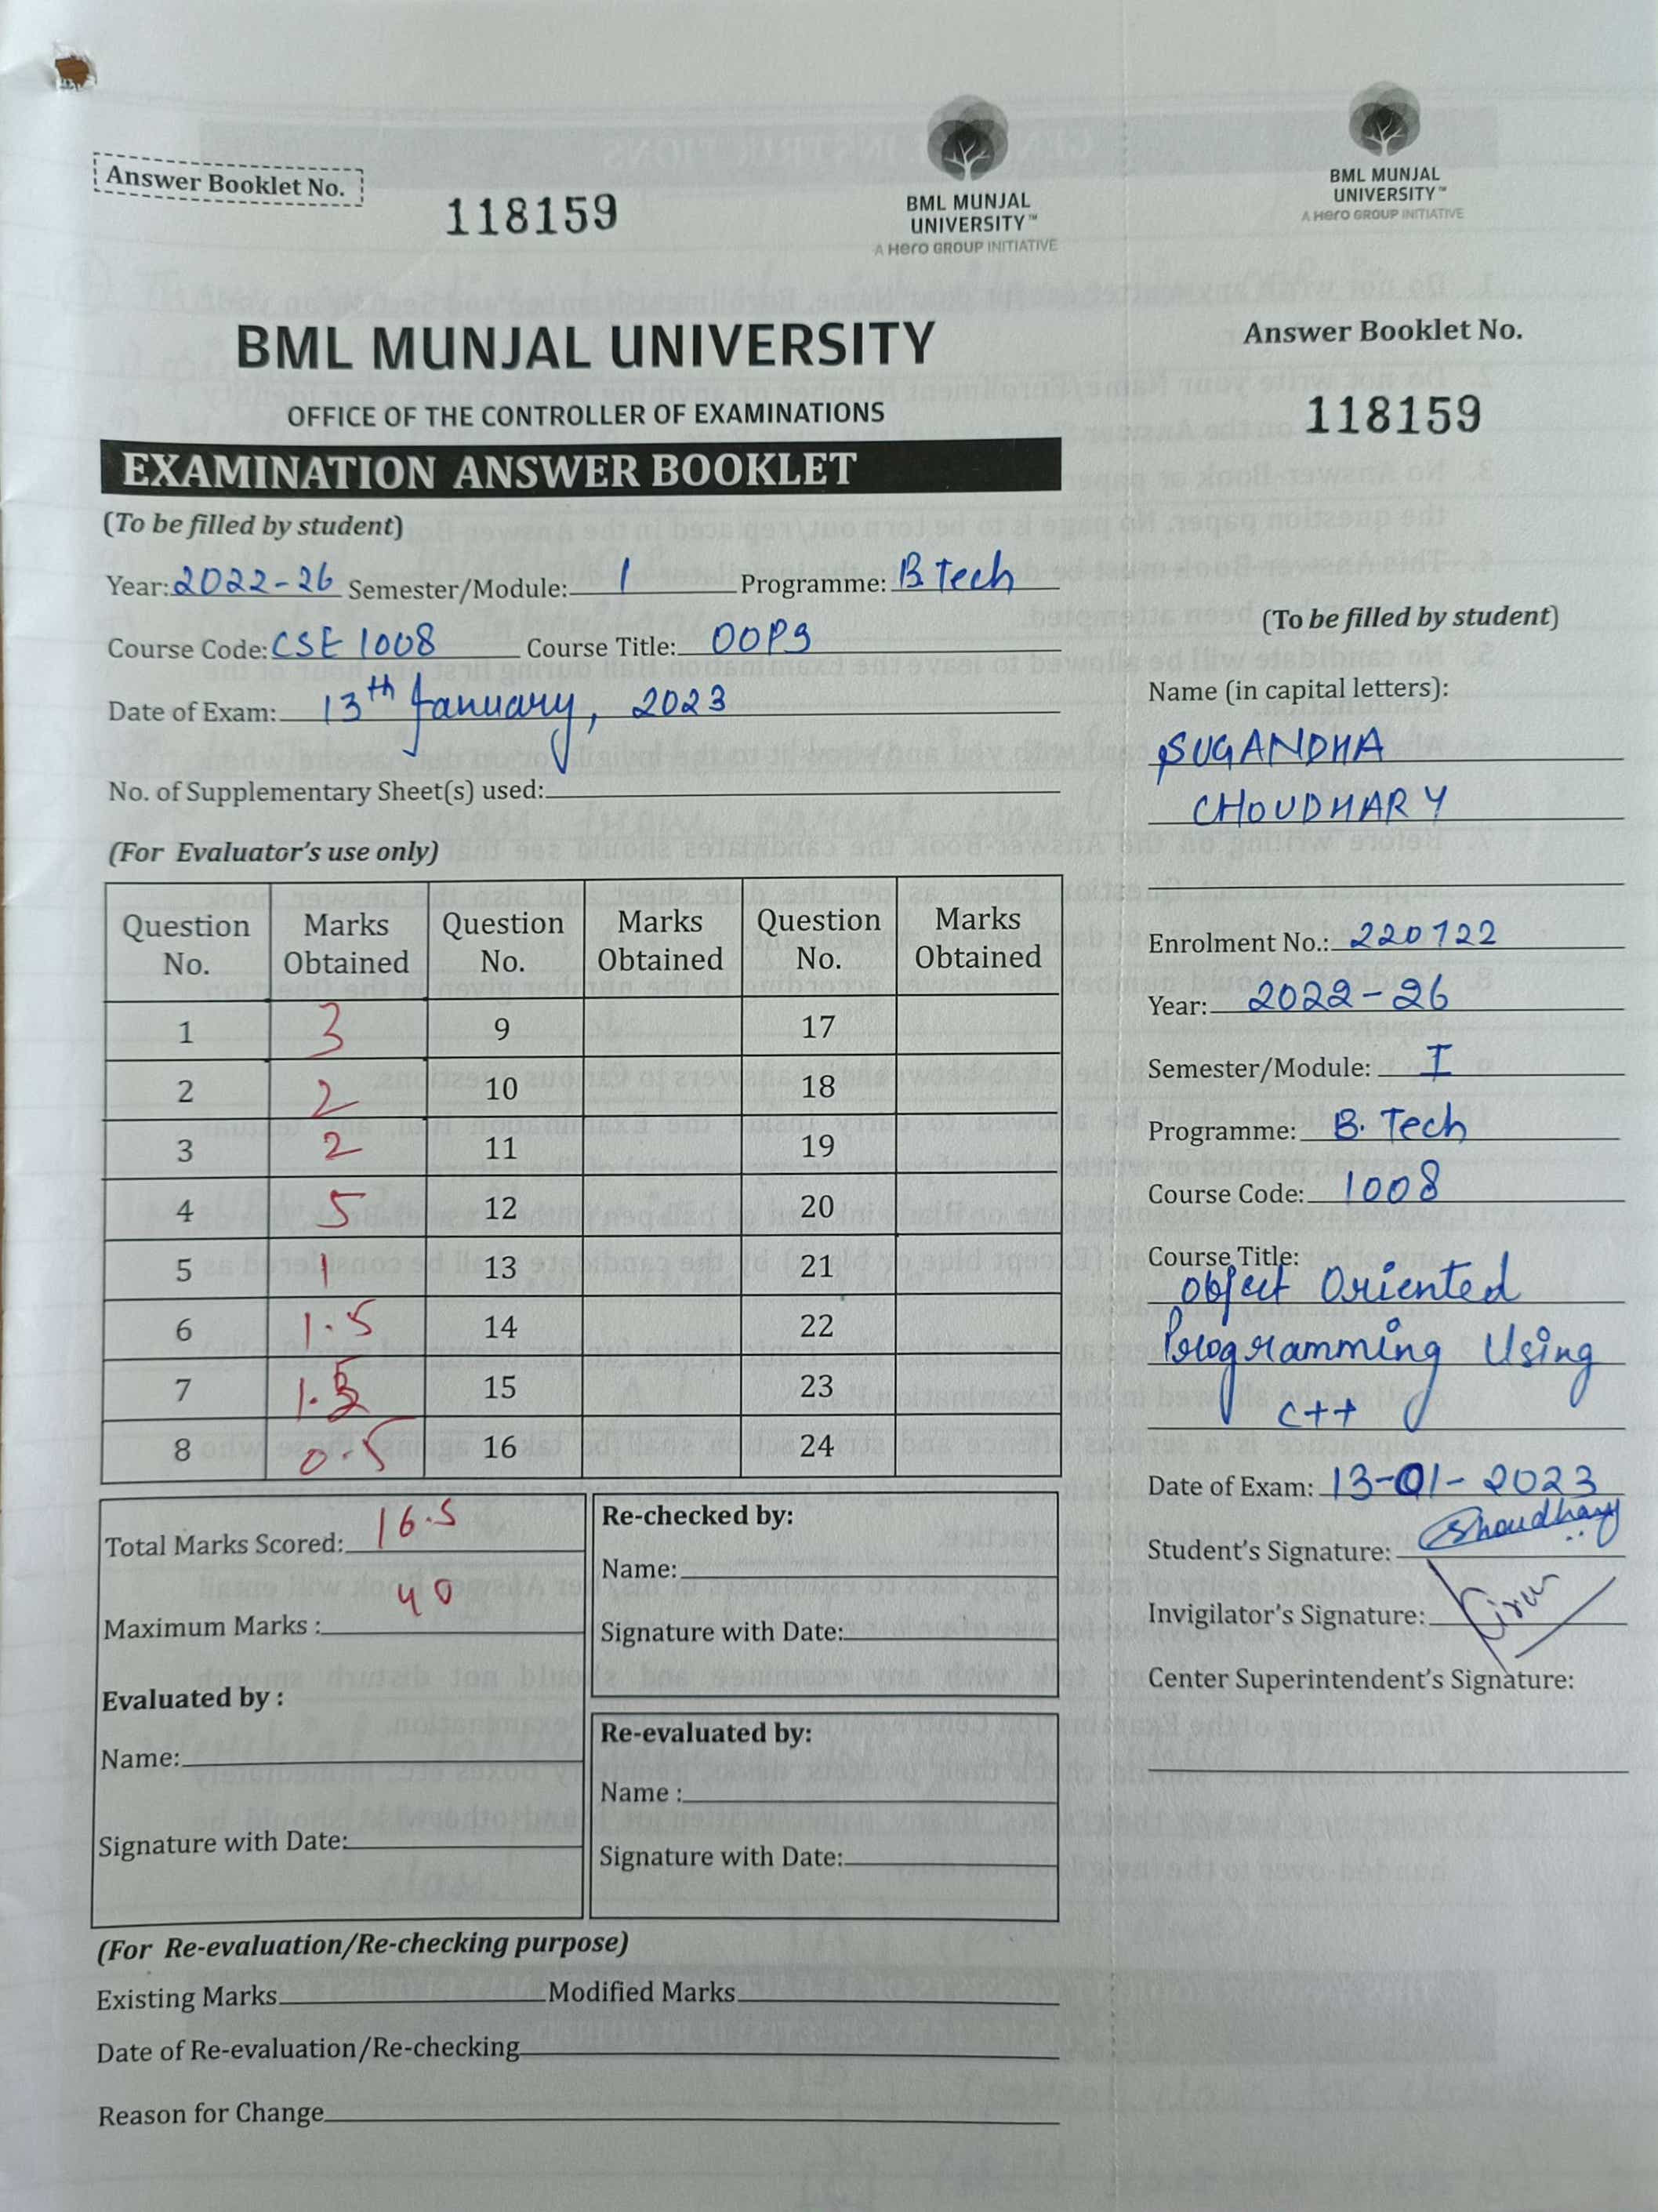 Answer Booklet No.
118159
BML MUNJAL
UNIVERSITY™
A Hero GROUP INITIATIVE
BML MUNJAL UNIVERSITY
OFFICE OF THE CONTROLLER OF EXAMINATIONS
EXAMINATION ANSWER BOOKLET
(To be filled by student)
Year: 2022-26 Semester/Module: 1 Programme: B.Tech
Course Code: CSE 1008 Course Title: OOPS
Date of Exam: 13th January, 2023
No. of Supplementary Sheet(s) used:
(For Evaluator's use only)
Question No. Marks Obtained Question No. Marks Obtained Question No. Marks Obtained
1 3 9 17
2 2 10 18
3 2 11 19
4 5 12 20
5 1 13 21
6 1.5 14 22
7 1.5 15 23
8 0.5 16 24
Total Marks Scored: 16.5
Maximum Marks : 40
Evaluated by :
Name:
Signature with Date:
Re-checked by:
Name:
Signature with Date:
Re-evaluated by:
Name :
Signature with Date:
(For Re-evaluation/Re-checking purpose)
Existing Marks Modified Marks
Date of Re-evaluation/Re-checking
Reason for Change
BML MUNJAL
UNIVERSITY™
A Hero GROUP INITIATIVE
Answer Booklet No.
118159
(To be filled by student)
Name (in capital letters):
SUGANDHA
CHOUDHARY
Enrolment No.: 220722
Year: 2022-26
Semester/Module: I
Programme: B. Tech
Course Code: 1008
Course Title:
Object Oriented
Programming Using
C++
Date of Exam: 13-01-2023
Student's Signature: Choudhary
Invigilator's Signature:
Center Superintendent's Signature: